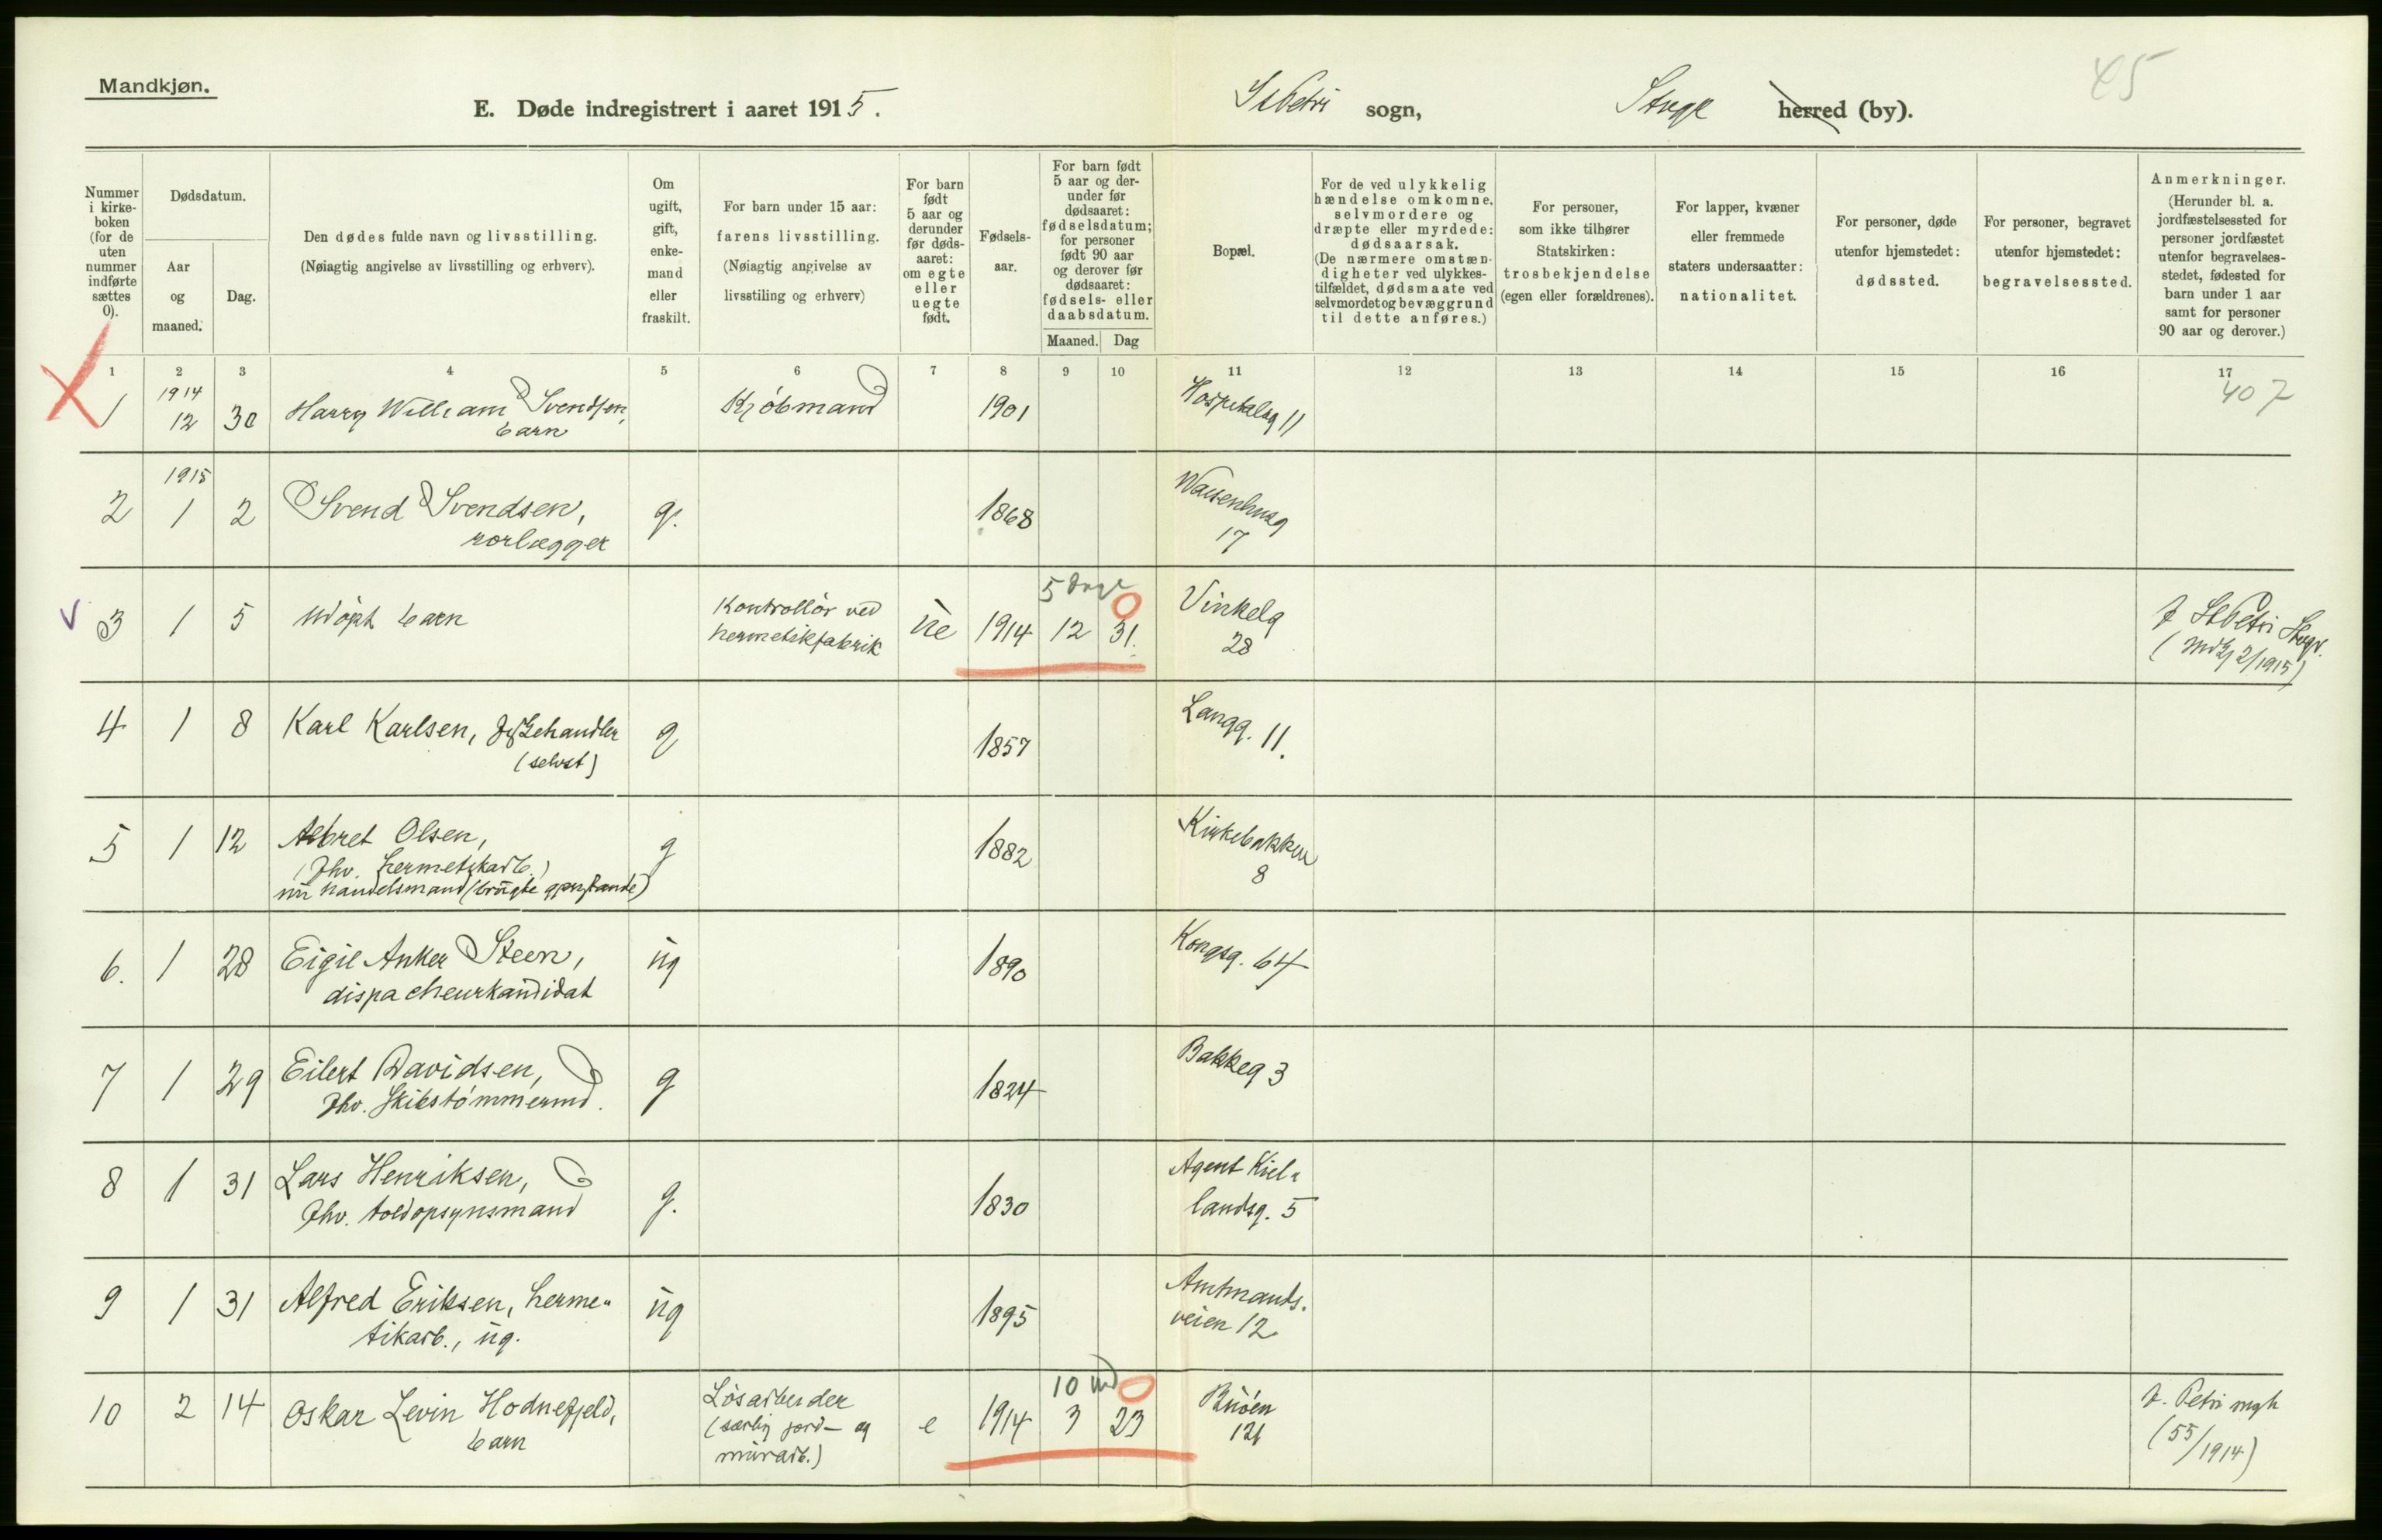 Mandkjøn.
E. Døde indregistrert i aaret 1915.
St Petri sogn,
Stvgr herred (by).
45
Nummer
i kirke-
boken
(for de
uten
nummer
indførte
sættes
0).
Dødsdatum.
Aar
og
maaned.
Dag.
Den dødes fulde navn og livsstilling.
(Nøiagtig angivelse av livsstilling og erhverv).
Om
ugift,
gift,
enke-
mand
eller
fraskilt.
For barn under 15 aar:
farens livsstilling.
(Nøiagtig angivelse av
livsstiling og erhverv)
For barn
født
5 aar og
derunder
før døds-
aaret:
om egte
eller
uegte
født.
Fødsels-
aar.
For barn født
5 aar og der-
under før
dødsaaret:
fødselsdatum;
for personer
født 90 aar
og derover før
dødsaaret:
fødsels- eller
daabsdatum.
Maaned. Dag
Bopæl.
For de ved ulykkelig
hændelse omkomne,
selvmordere og
dræpte eller myrdede:
dødsaarsak.
(De nærmere omstæn-
digheter ved ulykkes-
tilfældet, dødsmaate ved
selvmordet og bevæggrund
til dette anføres.)
For personer,
som ikke tilhører
Statskirken:
trosbekjendelse
(egen eller forældrenes).
For lapper, kvæner
eller fremmede
staters undersaatter:
nationalitet.
For personer, døde
utenfor hjemstedet:
dødssted.
For personer, begravet
utenfor hjemstedet:
begravelsessted.
Anmerkninger.
(Herunder bl. a.
jordfæstelsessted for
personer jordfæstet
utenfor begravelses-
stedet, fødested for
barn under 1 aar
samt for personer
90 aar og derover.)
1 2 3 4 5 6 7 8 9 10 11 12 13 14 15 16 17
1914
1 12 30 Harry William Svendsen, Kjöbmand 1901 Hospitalsg 11 407
barn
1915
2 1 2 Svend Svendsen, g. 1868 Waisenhusg
rorlægger 17
5 dage
3 1 5 udöpt barn Kontrollör ved ue 1914 12 31. Vinkelg f. St Petri Stvgr.
hermetikfabrik 28
4 1 8 Karl Karlsen, fiskehandler g 1857 Langg. 11.
(selvst)
5 1 12 Albret Olsen, g 1882 Kirkebakken
(fhv. hermetikarb.) 8
nu handelsmand (brugte gjenstande)
6. 1 28 Eigil Anker Steen, ug 1890 Kongsg. 64
dispacheurkandidat
7 1 29 Eilert Davidsen, g 1824 Bakkeg 3
Fhv. skibstömmermd.
8 1 31 Lars Henriksen, g. 1830 Agent Kiel-
Fhv. toldopsynsmand landsg. 5
9 1 31 Alfred Eriksen, herme- ug 1895 Amtmands-
tikarb., ug. veien 12
10 md
10 2 14 Oskar Levin Hodnefjeld, Lösarbeider e 1914 3 23 Buöen f. Petri mgh
barn (særlig jord- og 121 (55/1914)
murarb.)